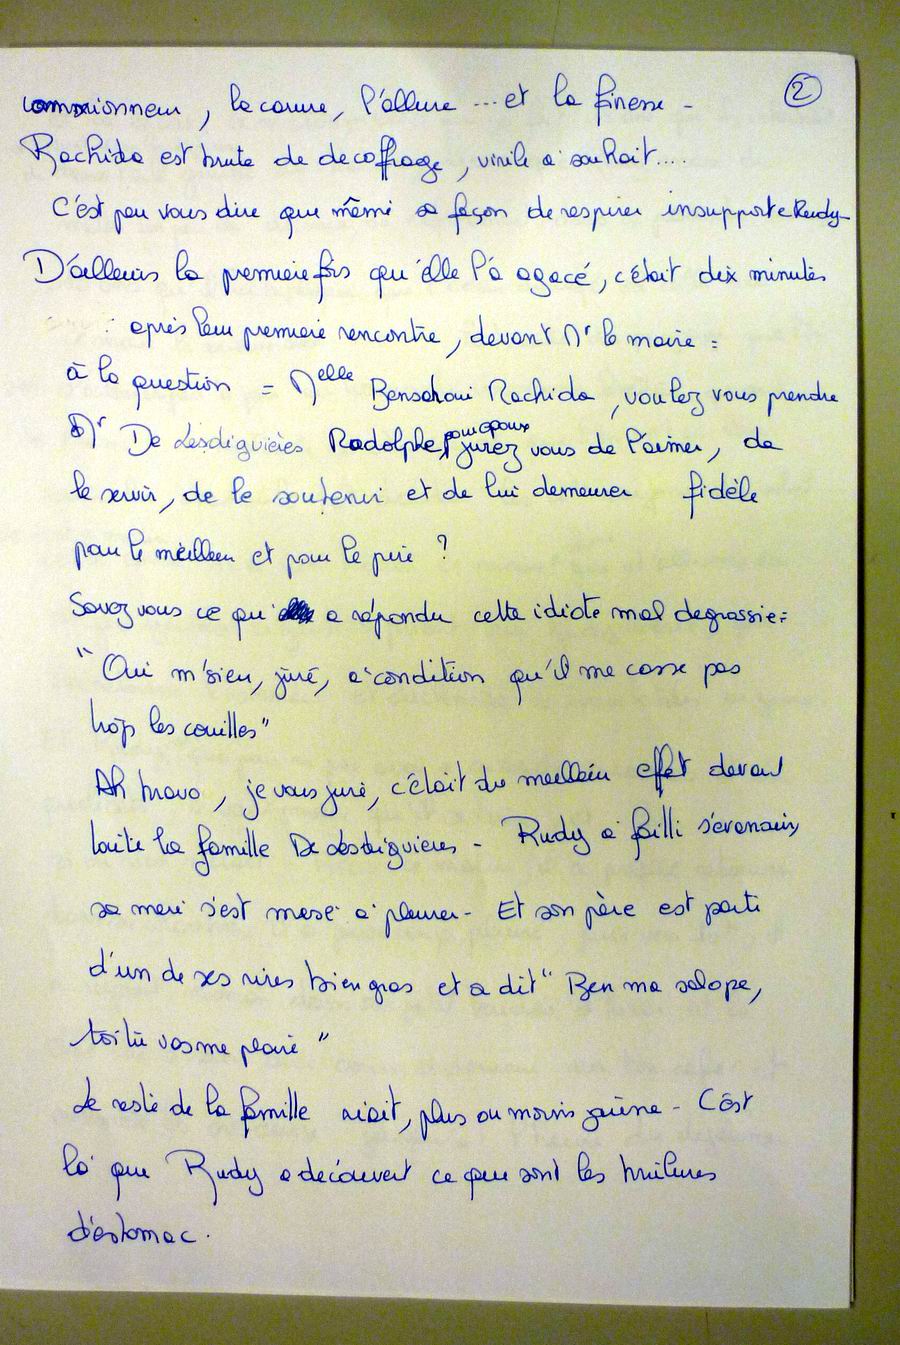 ②
camionneur, la carrure, l'allure ... et la finesse -
Rachida est brute de decoffrage, virile à souhait....
C'est peu vous dire que même sa façon de respirer insupporte Rudy
D'ailleurs la premiere fois qu'elle l'a agacé, c'était dix minutes
après leur première rencontre, devant Mr le maire :
à la question = Melle Bensahoui Rachida, voulez vous prendre
Mr De Lesdiguières Rodolphe, pour époux jurez vous de l'aimer, de
le servir, de le soutenir et de lui demeurer fidèle
pour le meilleur et pour le pire ?
Savez vous ce qu' a répondu cette idiote mal degrossie :
"Oui m'sieu, juré, à condition qu'il me casse pas
trop les couilles"
Ah bravo, je vous jure, c'était du meilleur effet devant
toute la famille De Lesdiguières - Rudy a failli s'evanouir,
sa mère s'est mise à pleurer - Et son père est parti
d'un de ses rires bien gras et a dit "Ben ma salope,
toi tu vas me plaire"
Le reste de la famille riait, plus ou moins gênée - C'est
là que Rudy a découvert ce que sont les brûlures
d'estomac.